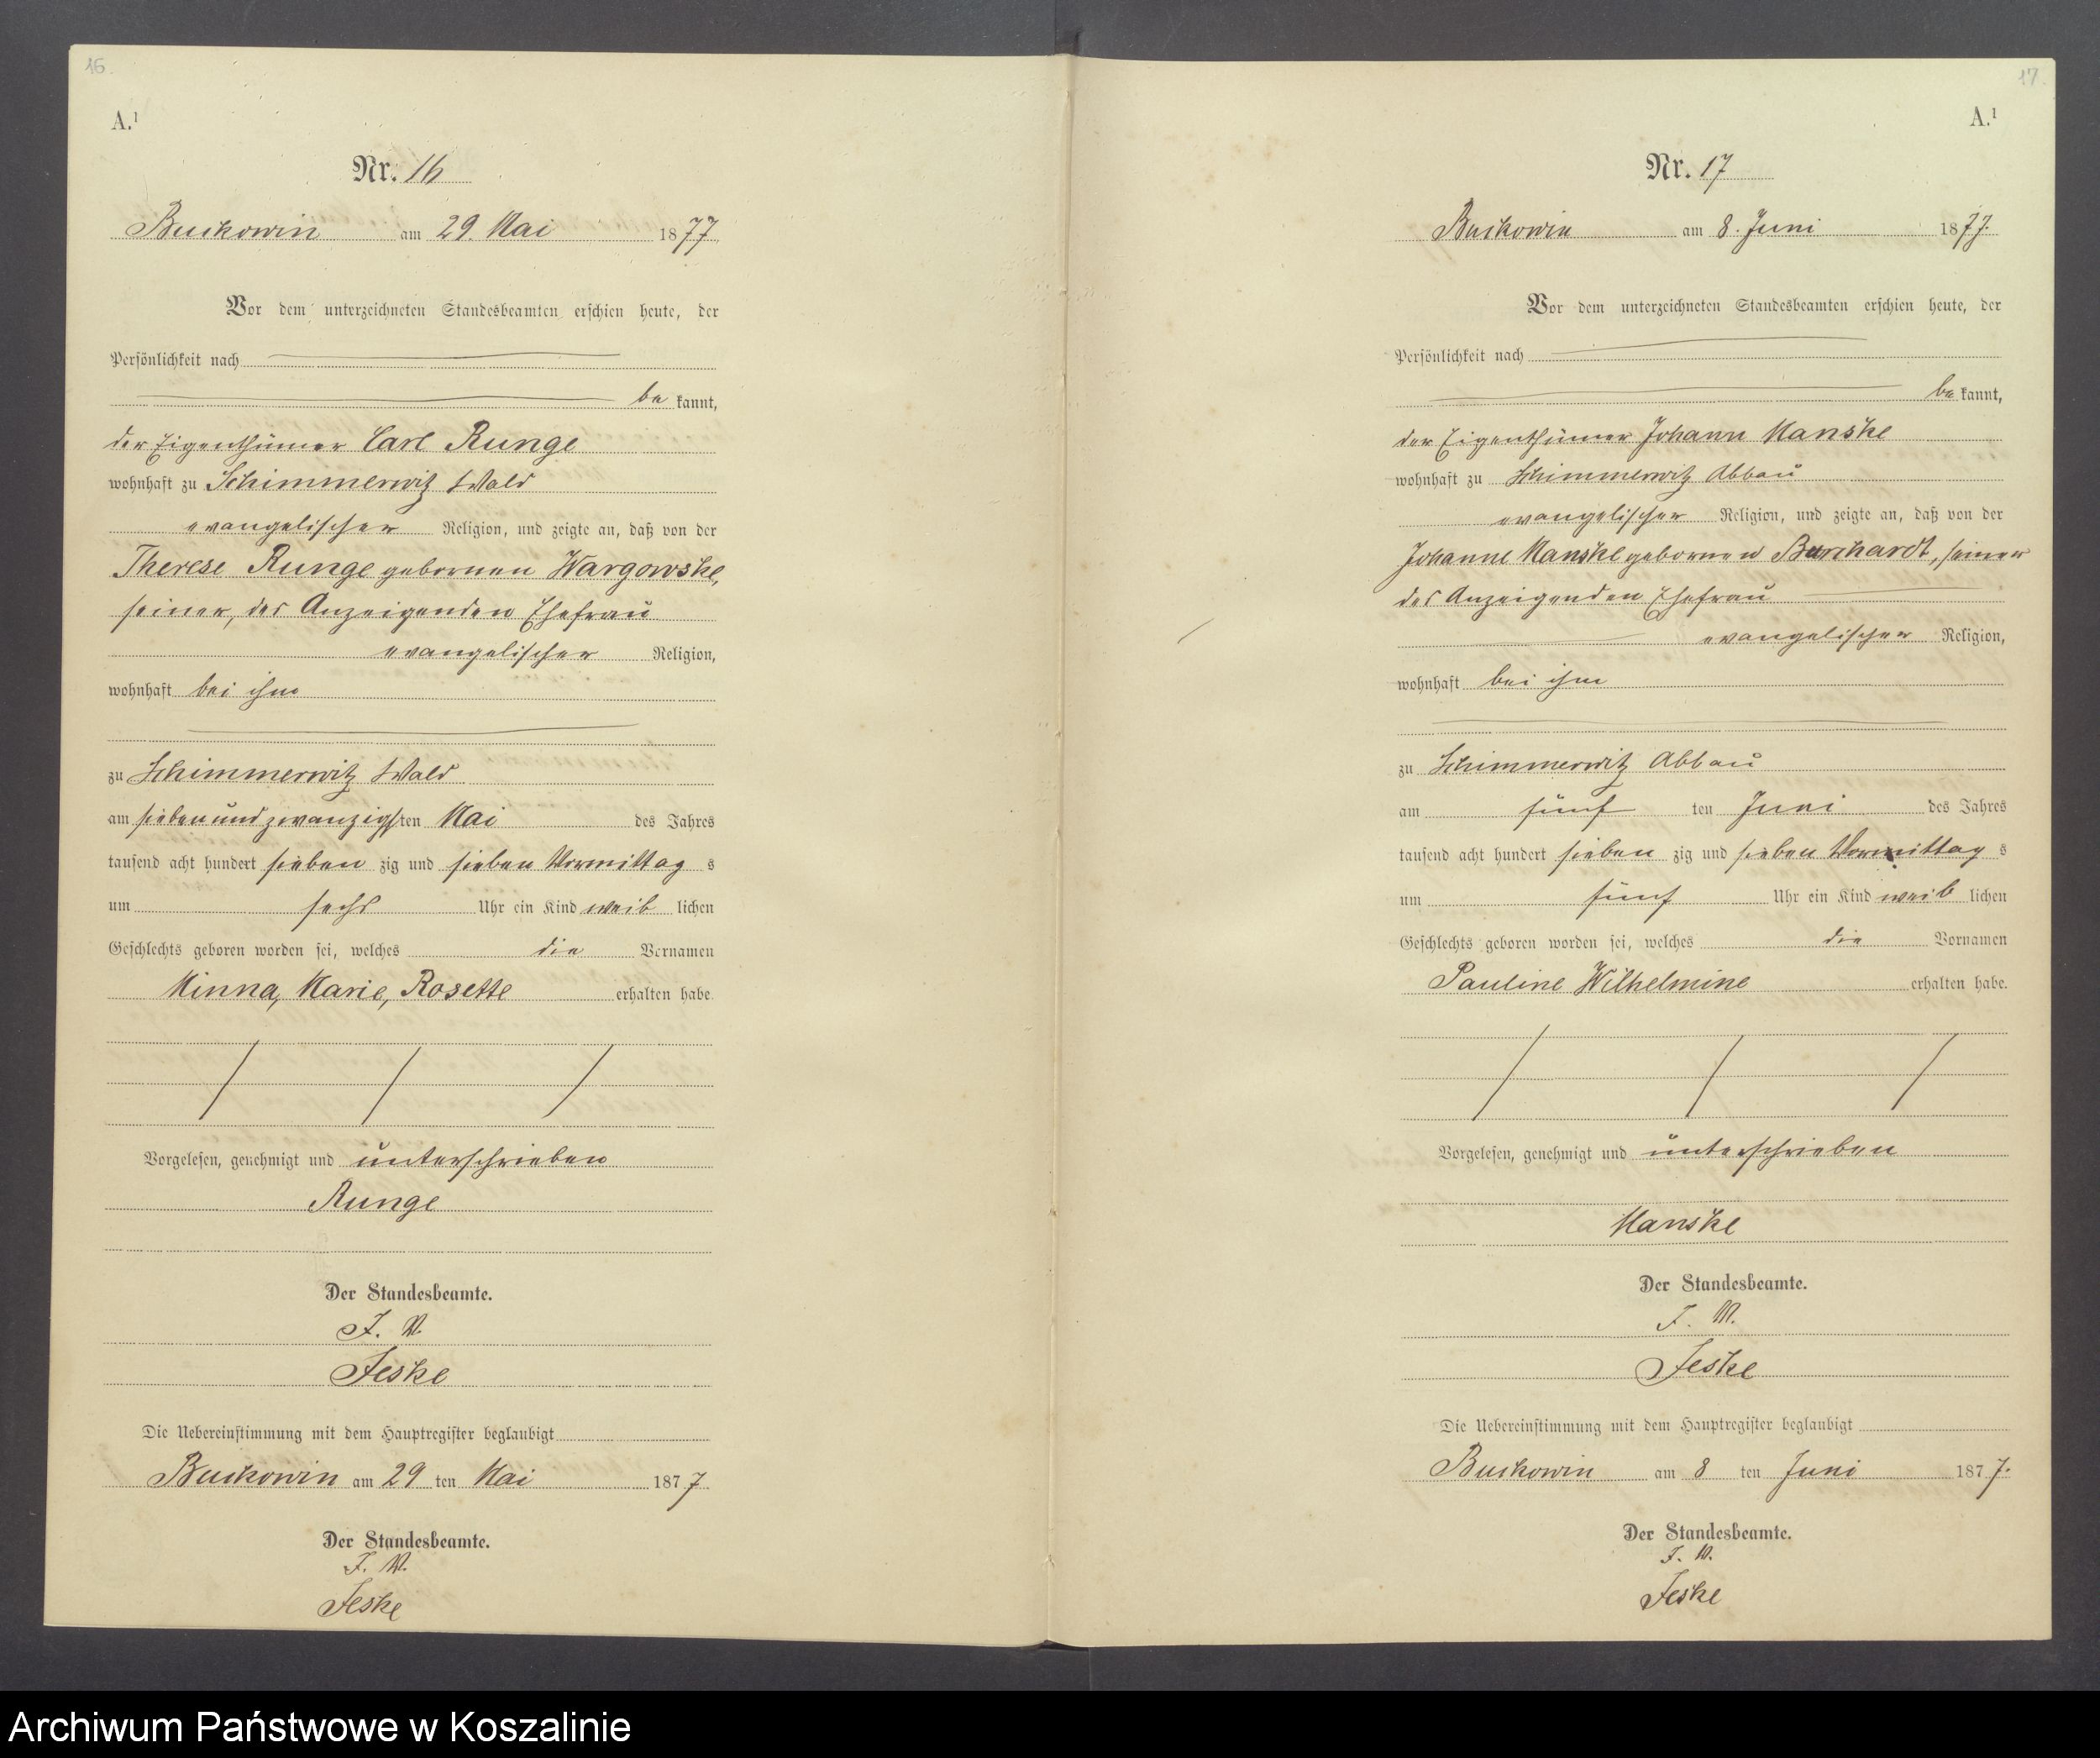 16.
A.¹
Nr. 16
Buckowin am 29. Mai 1877
Vor dem unterzeichneten Standesbeamten erschien heute, der
Persönlichkeit nach
be kannt,
der Eigenthümer Carl Runge
wohnhaft zu Schimmerwitz Wald
evangelischer Religion, und zeigte an, daß von der
Therese Runge gebornen Wargowske,
seiner, des Anzeigenden Ehefrau
evangelischer Religion,
wohnhaft bei ihm
zu Schimmerwitz Wald
am sieben und zwanzigsten Mai des Jahres
tausend acht hundert sieben zig und sieben Vormittag s
um sechs Uhr ein Kind weib lichen
Geschlechts geboren worden sei, welches die Vornamen
Minna, Marie, Rosette erhalten habe.
Vorgelesen, genehmigt und unterschrieben
Runge
Der Standesbeamte.
J. V.
Jeske
Die Uebereinstimmung mit dem Hauptregister beglaubigt
Buckowin am 29 ten Mai 1877
Der Standesbeamte.
J. V.
Jeske
17.
A.¹
Nr. 17
Buckowin am 8. Juni 1877.
Vor dem unterzeichneten Standesbeamten erschien heute, der
Persönlichkeit nach
be kannt,
der Eigenthümer Johann Manske
wohnhaft zu Schimmerwitz Abbau
evangelischer Religion, und zeigte an, daß von der
Johanne Manske gebornen Burchardt, seiner
des Anzeigenden Ehefrau
evangelischer Religion,
wohnhaft bei ihm
zu Schimmerwitz Abbau
am fünf ten Juni des Jahres
tausend acht hundert sieben zig und sieben Vormittag s
um fünf Uhr ein Kind weib lichen
Geschlechts geboren worden sei, welches die Vornamen
Pauline Wilhelmine erhalten habe.
Vorgelesen, genehmigt und unterschrieben
Manske
Der Standesbeamte.
J. V.
Jeske
Die Uebereinstimmung mit dem Hauptregister beglaubigt
Buckowin am 8 ten Juni 1877.
Der Standesbeamte.
J. V.
Jeske
Archiwum Państwowe w Koszalinie